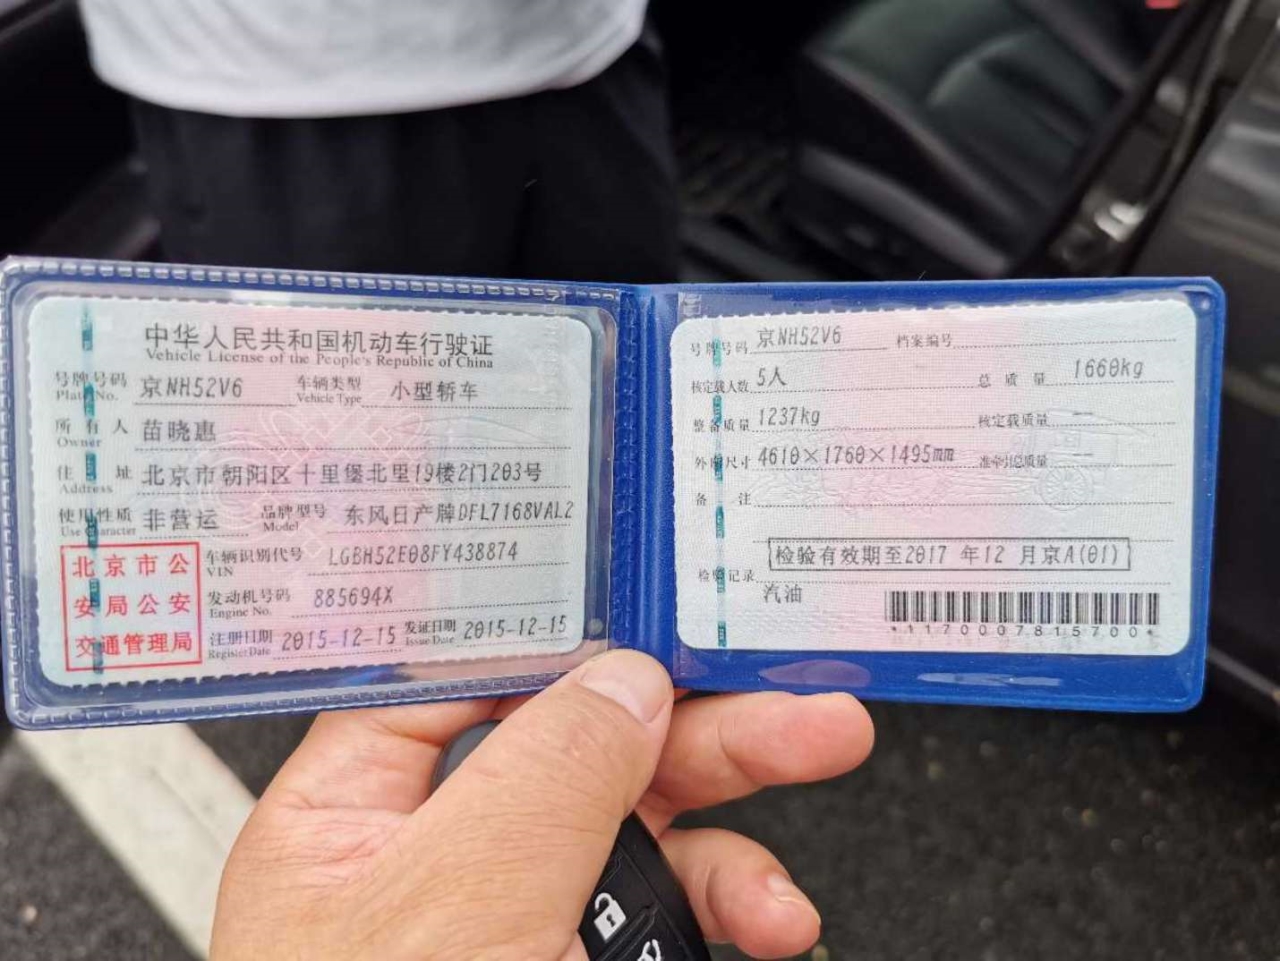 中华人民共和国机动车行驶证
Vehicle License of the People's Republic of China
号牌号码 京NH52V6 车辆类型 小型轿车
Plate No. Vehicle Type
所有人 苗晓惠
Owner
住址 北京市朝阳区十里堡北里19楼2门203号
Address
使用性质 非营运 品牌型号 东风日产牌DFL7168VAL2
Use Character Model
北京市公
安局公安
交通管理局
车辆识别代号 LGBH52E08FY438874
VIN
发动机号码 885694X
Engine No.
注册日期 2015-12-15 发证日期 2015-12-15
Register Date Issue Date
号牌号码 京NH52V6 档案编号
核定载人数 5人 总质量 1660kg
整备质量 1237kg 核定载质量 --
外廓尺寸 4610×1760×1495mm 准牵引总质量 --
备注
检验有效期至2017 年12 月京A(01)
检验记录
汽油
*1170007815700*